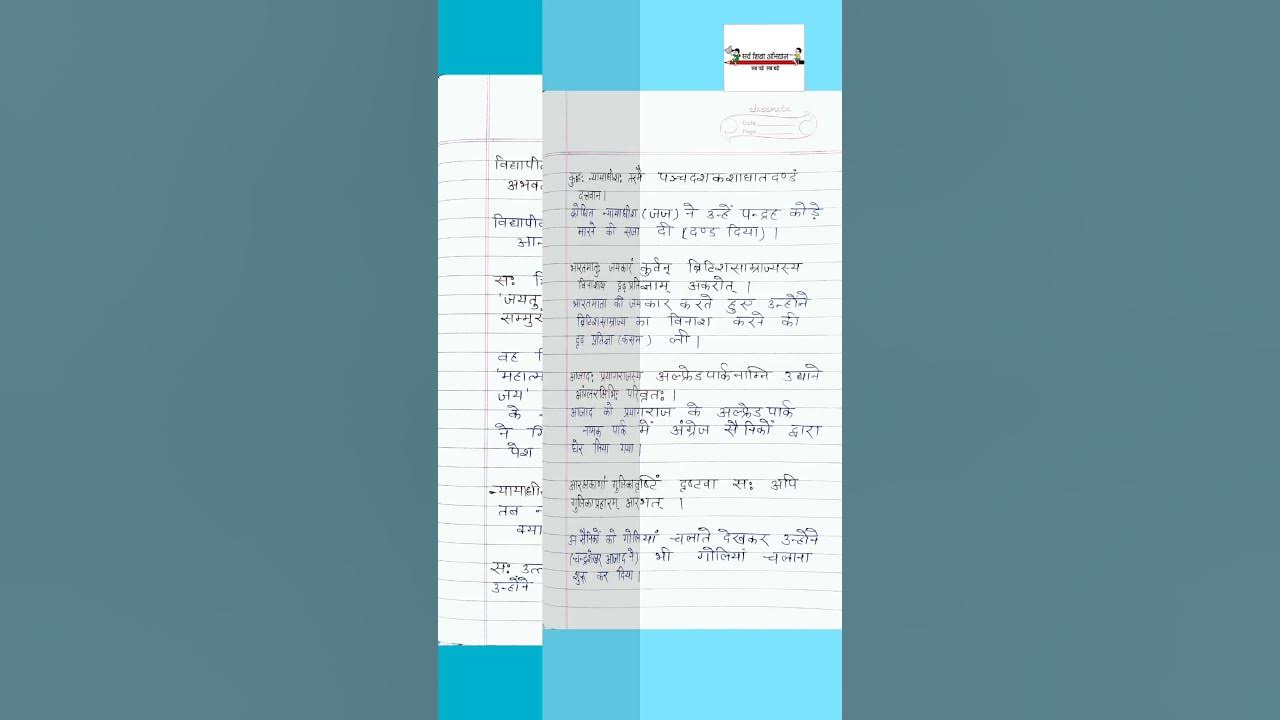 सर्व शिक्षा अभियान
सब पढ़ें सब बढ़ें
classmate
Date
Page
विद्यापी
अभव
विद्यापी
आन
सः
'जयतु
सम्मुख
वह
'महात्म
जय'
के
ने
पेश
न्यायाधी
तब
क्या
सः उत
उन्होंने
क्रुद्धः न्यायाधीशः तस्मै पञ्चदशकशाघातदण्डं
दत्तवान।
क्रोधित न्यायाधीश (जज) ने उन्हें पन्द्रह कोड़े
मारने की सजा दी (दण्ड दिया)।
भारतमातुः जयकारं कुर्वन् ब्रिटिशसाम्राज्यस्य
विनाशाय दृढप्रतिज्ञाम् अकरोत्।
भारतमाता की जयकार करते हुए उन्होंने
ब्रिटिशसाम्राज्य का विनाश करने की
दृढ़ प्रतिज्ञा (कसम) ली।
आजादः प्रयागराजस्य अल्फ्रेडपार्कनाम्नि उद्याने
परिवृतः।
आजाद को प्रयागराज के अल्फ्रेड पार्क
नामक पार्क में अंग्रेज सैनिकों द्वारा
घेर लिया गया।
आरक्षकाणां गुलिकावृष्टिं दृष्टवा सः अपि
गुलिकाप्रहारम् आरभत्।
सैनिकों को गोलियां चलाते देखकर उन्होंने
(चन्द्रशेखर आजाद ने) भी गोलियां चलाना
शुरू कर दिया।